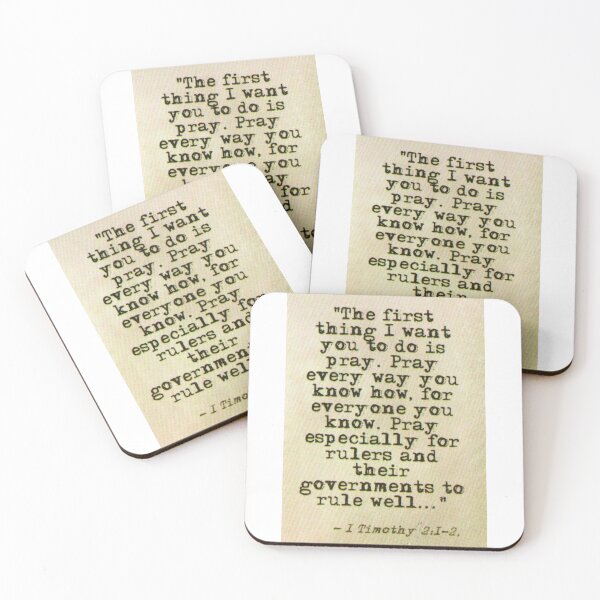 "The first
thing I want
you to do is
pray. Pray
every way you
know how, for
everyone you
for
to
"The first
thing I want
you to do is
pray. Pray
every way you
know how, for
everyone you
know. Pray
especially for
rulers and
their
"The first
thing I want
you to do is
pray. Pray
every way you
know how, for
everyone you
know. Pray
especially for
rulers and
their
governments
rule well
"The first
thing I want
you to do is
pray. Pray
every way you
know how, for
everyone you
know. Pray
especially for
rulers and
their
governments to
rule well..."
~ I Timothy 2:1-2.